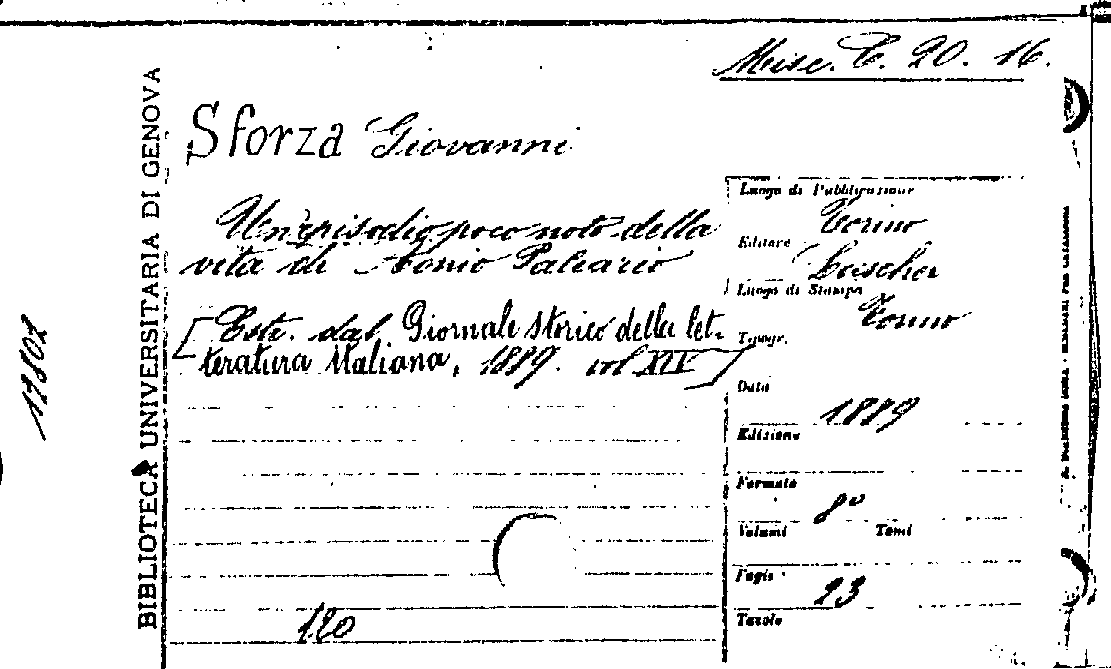 Misc. C. 20. 16.
Sforza Giovanni
Un'episodio poco noto della
vita di Aonio Paleario
[Estr. dal Giornale storico della let-
teratura italiana, 1889. vol XIV]
120
Luogo di Pubblicazione
Torino
Editore
Loescher
Luogo di Stampa
Torino
Tipogr.
Data
1889
Edizione
Formato
8º
Volumi Tomi
Pagine
23
Tavole
BIBLIOTECA UNIVERSITARIA DI GENOVA